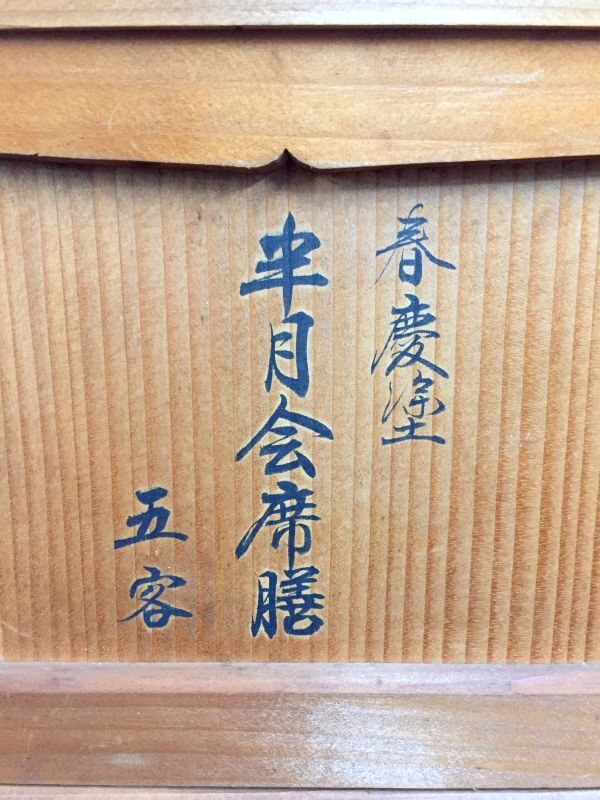 春慶塗
半月会席膳
五客